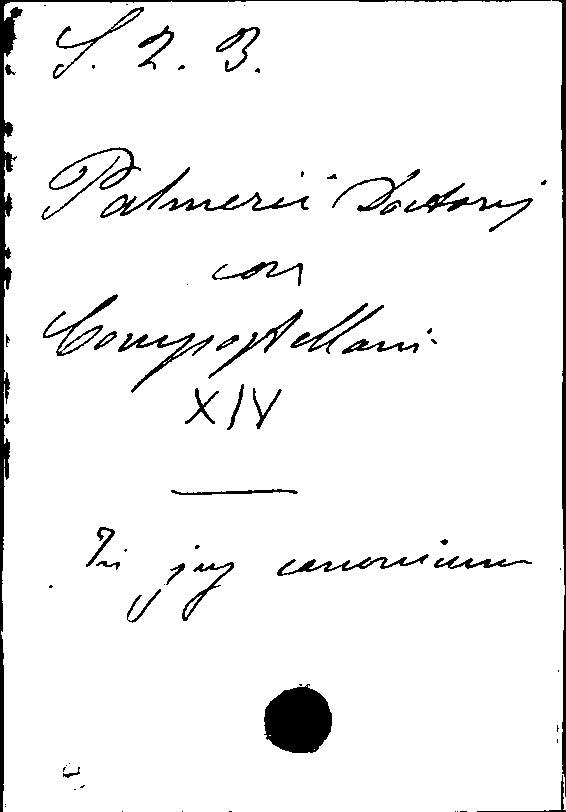 S. 2. 3.
Palmerii Doctoris
Compostellani
XIV
In jus canonicum